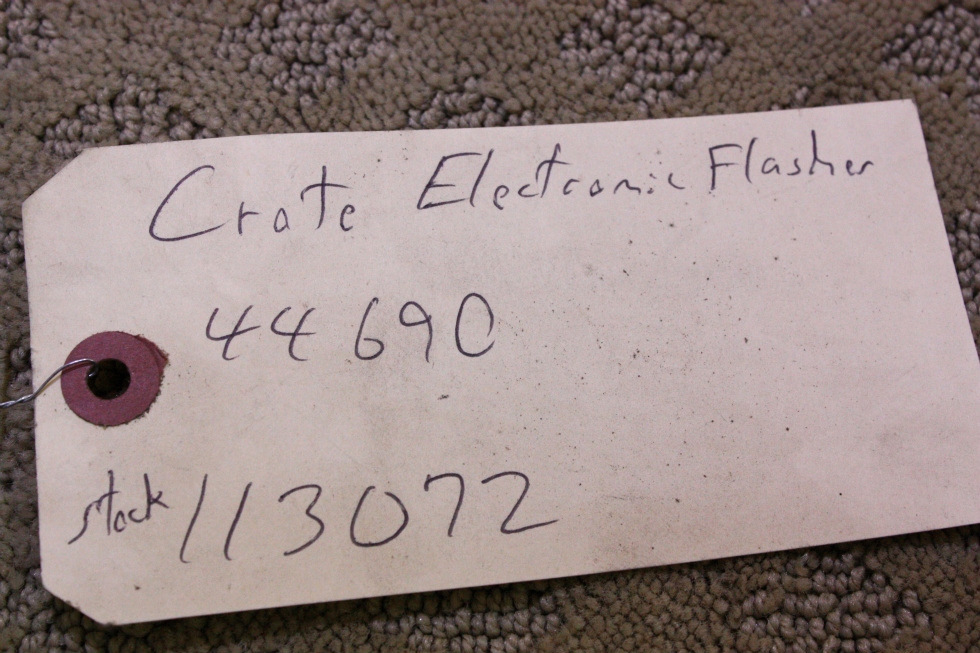 Crate Electronic Flasher
44690
stock 113072